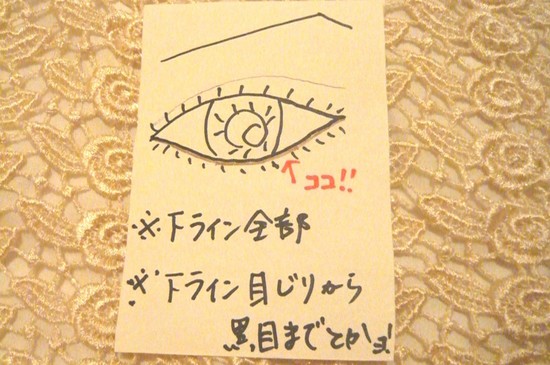 ココ!!
※下ライン全部
※下ライン目じりから
黒目までとか